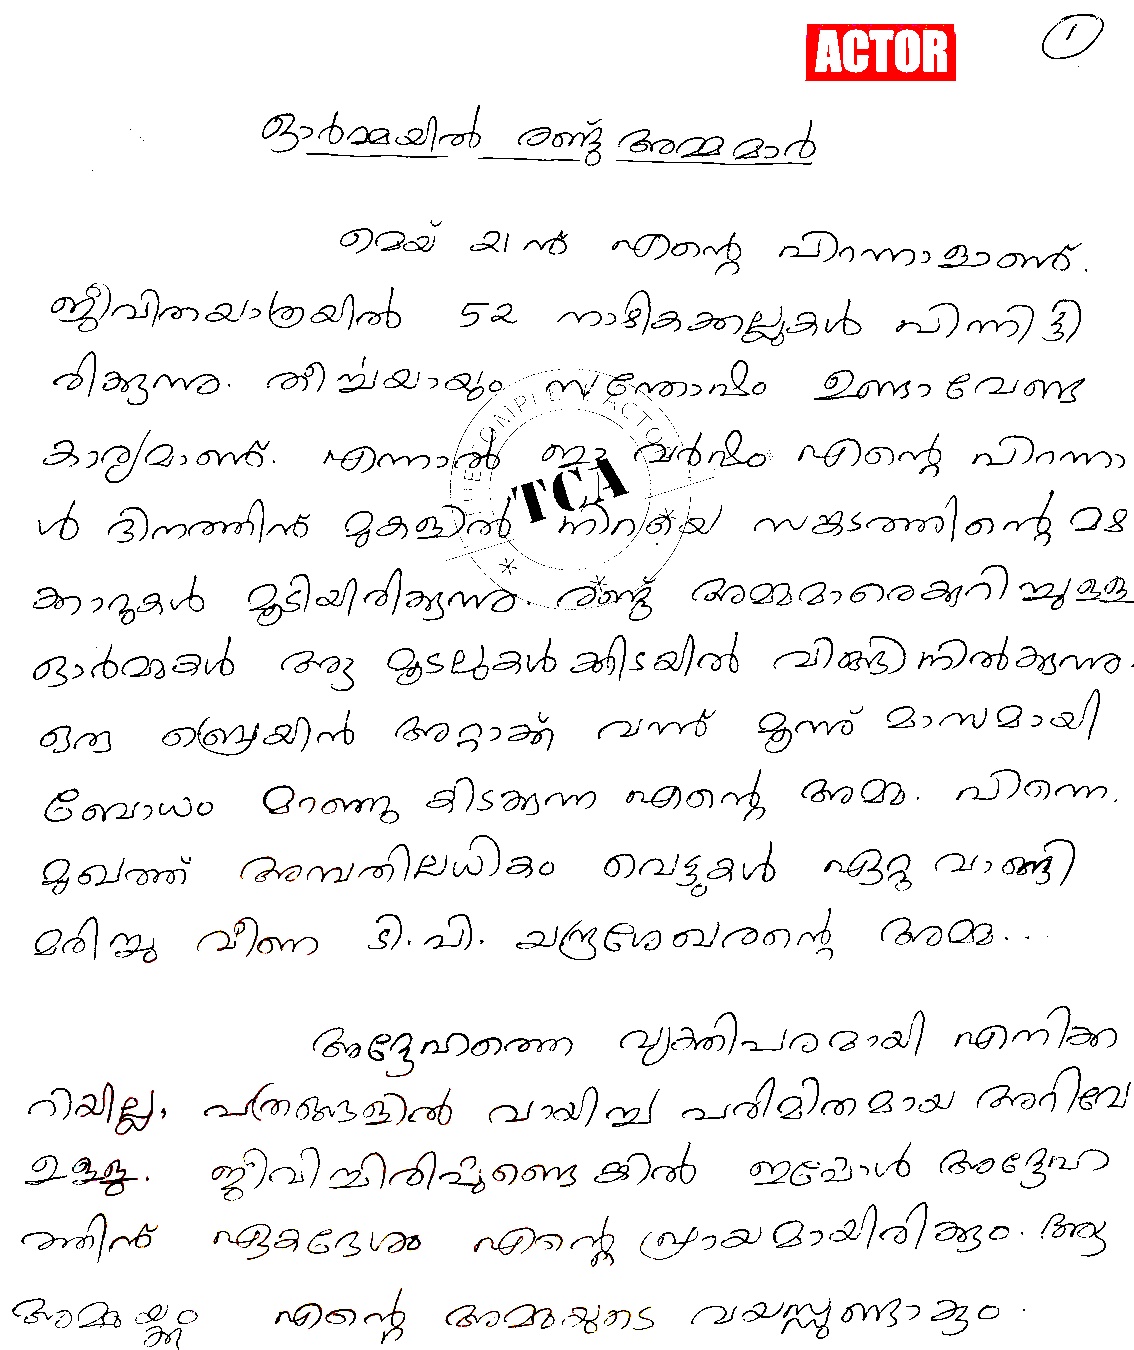 ACTOR
1
ഓർമ്മയിൽ രണ്ട് അമ്മമാർ
മെയ് 21 ന് എന്റെ പിറന്നാളാണ്.
ജീവിതയാത്രയിൽ 52 നാഴികക്കല്ലുകൾ പിന്നിട്ടി
രിക്കുന്നു. തീർച്ചയായും സന്തോഷം ഉണ്ടാവേണ്ട
കാര്യമാണ്. എന്നാൽ ഈ വർഷം എന്റെ പിറന്നാ
ൾ ദിനത്തിന് മുകളിൽ നിറയെ സങ്കടത്തിന്റെ മഴ
ക്കാറുകൾ മൂടിയിരിക്കുന്നു. രണ്ട് അമ്മമാരെക്കുറിച്ചുള്ള
ഓർമ്മകൾ ആ മൂടലുകൾക്കിടയിൽ വിങ്ങിനിൽക്കുന്നു.
ഒരു ബ്രെയിൻ അറ്റാക്ക് വന്ന് മൂന്ന് മാസമായി
ബോധം മറഞ്ഞു കിടക്കുന്ന എന്റെ അമ്മ. പിന്നെ,
മുഖത്ത് അമ്പതിലധികം വെട്ടുകൾ ഏറ്റു വാങ്ങി
മരിച്ചു വീണ ടി.പി. ചന്ദ്രശേഖരന്റെ അമ്മ...
അദ്ദേഹത്തെ വ്യക്തിപരമായി എനിക്ക
റിയില്ല, പത്രങ്ങളിൽ വായിച്ച പരിമിതമായ അറിവേ
ഉള്ളു. ജീവിച്ചിരിപ്പുണ്ടെങ്കിൽ ഇപ്പോൾ അദ്ദേഹ
ത്തിന് ഏകദേശം എന്റെ പ്രായമായിരിക്കും. ആ
അമ്മയ്ക്കും എന്റെ അമ്മയുടെ വയസ്സുണ്ടാകും.
THE COMPLETE ACTOR
TCA